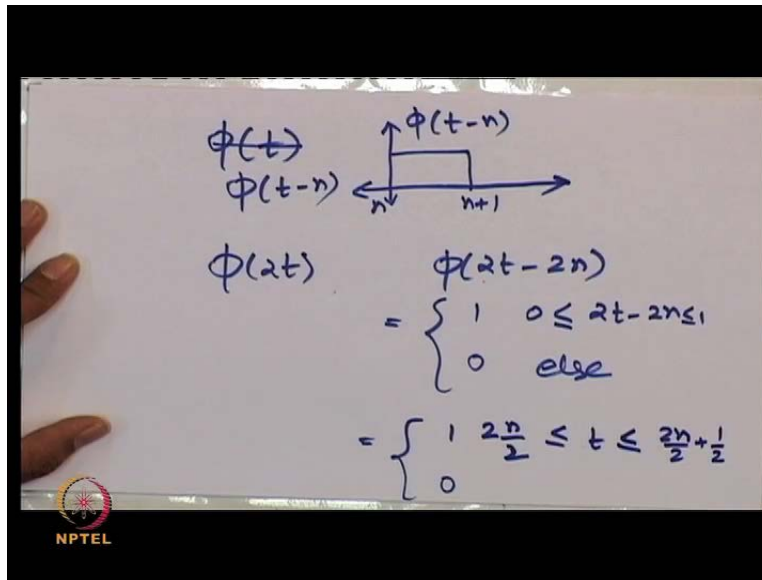 ϕ(t) ϕ(t-n)
ϕ(t-n) n n+1
ϕ(2t) ϕ(2t-2n)
= { 1 0 ≤ 2t-2n ≤ 1
0 else
= { 1 2n/2 ≤ t ≤ 2n/2 + 1/2
0
NPTEL